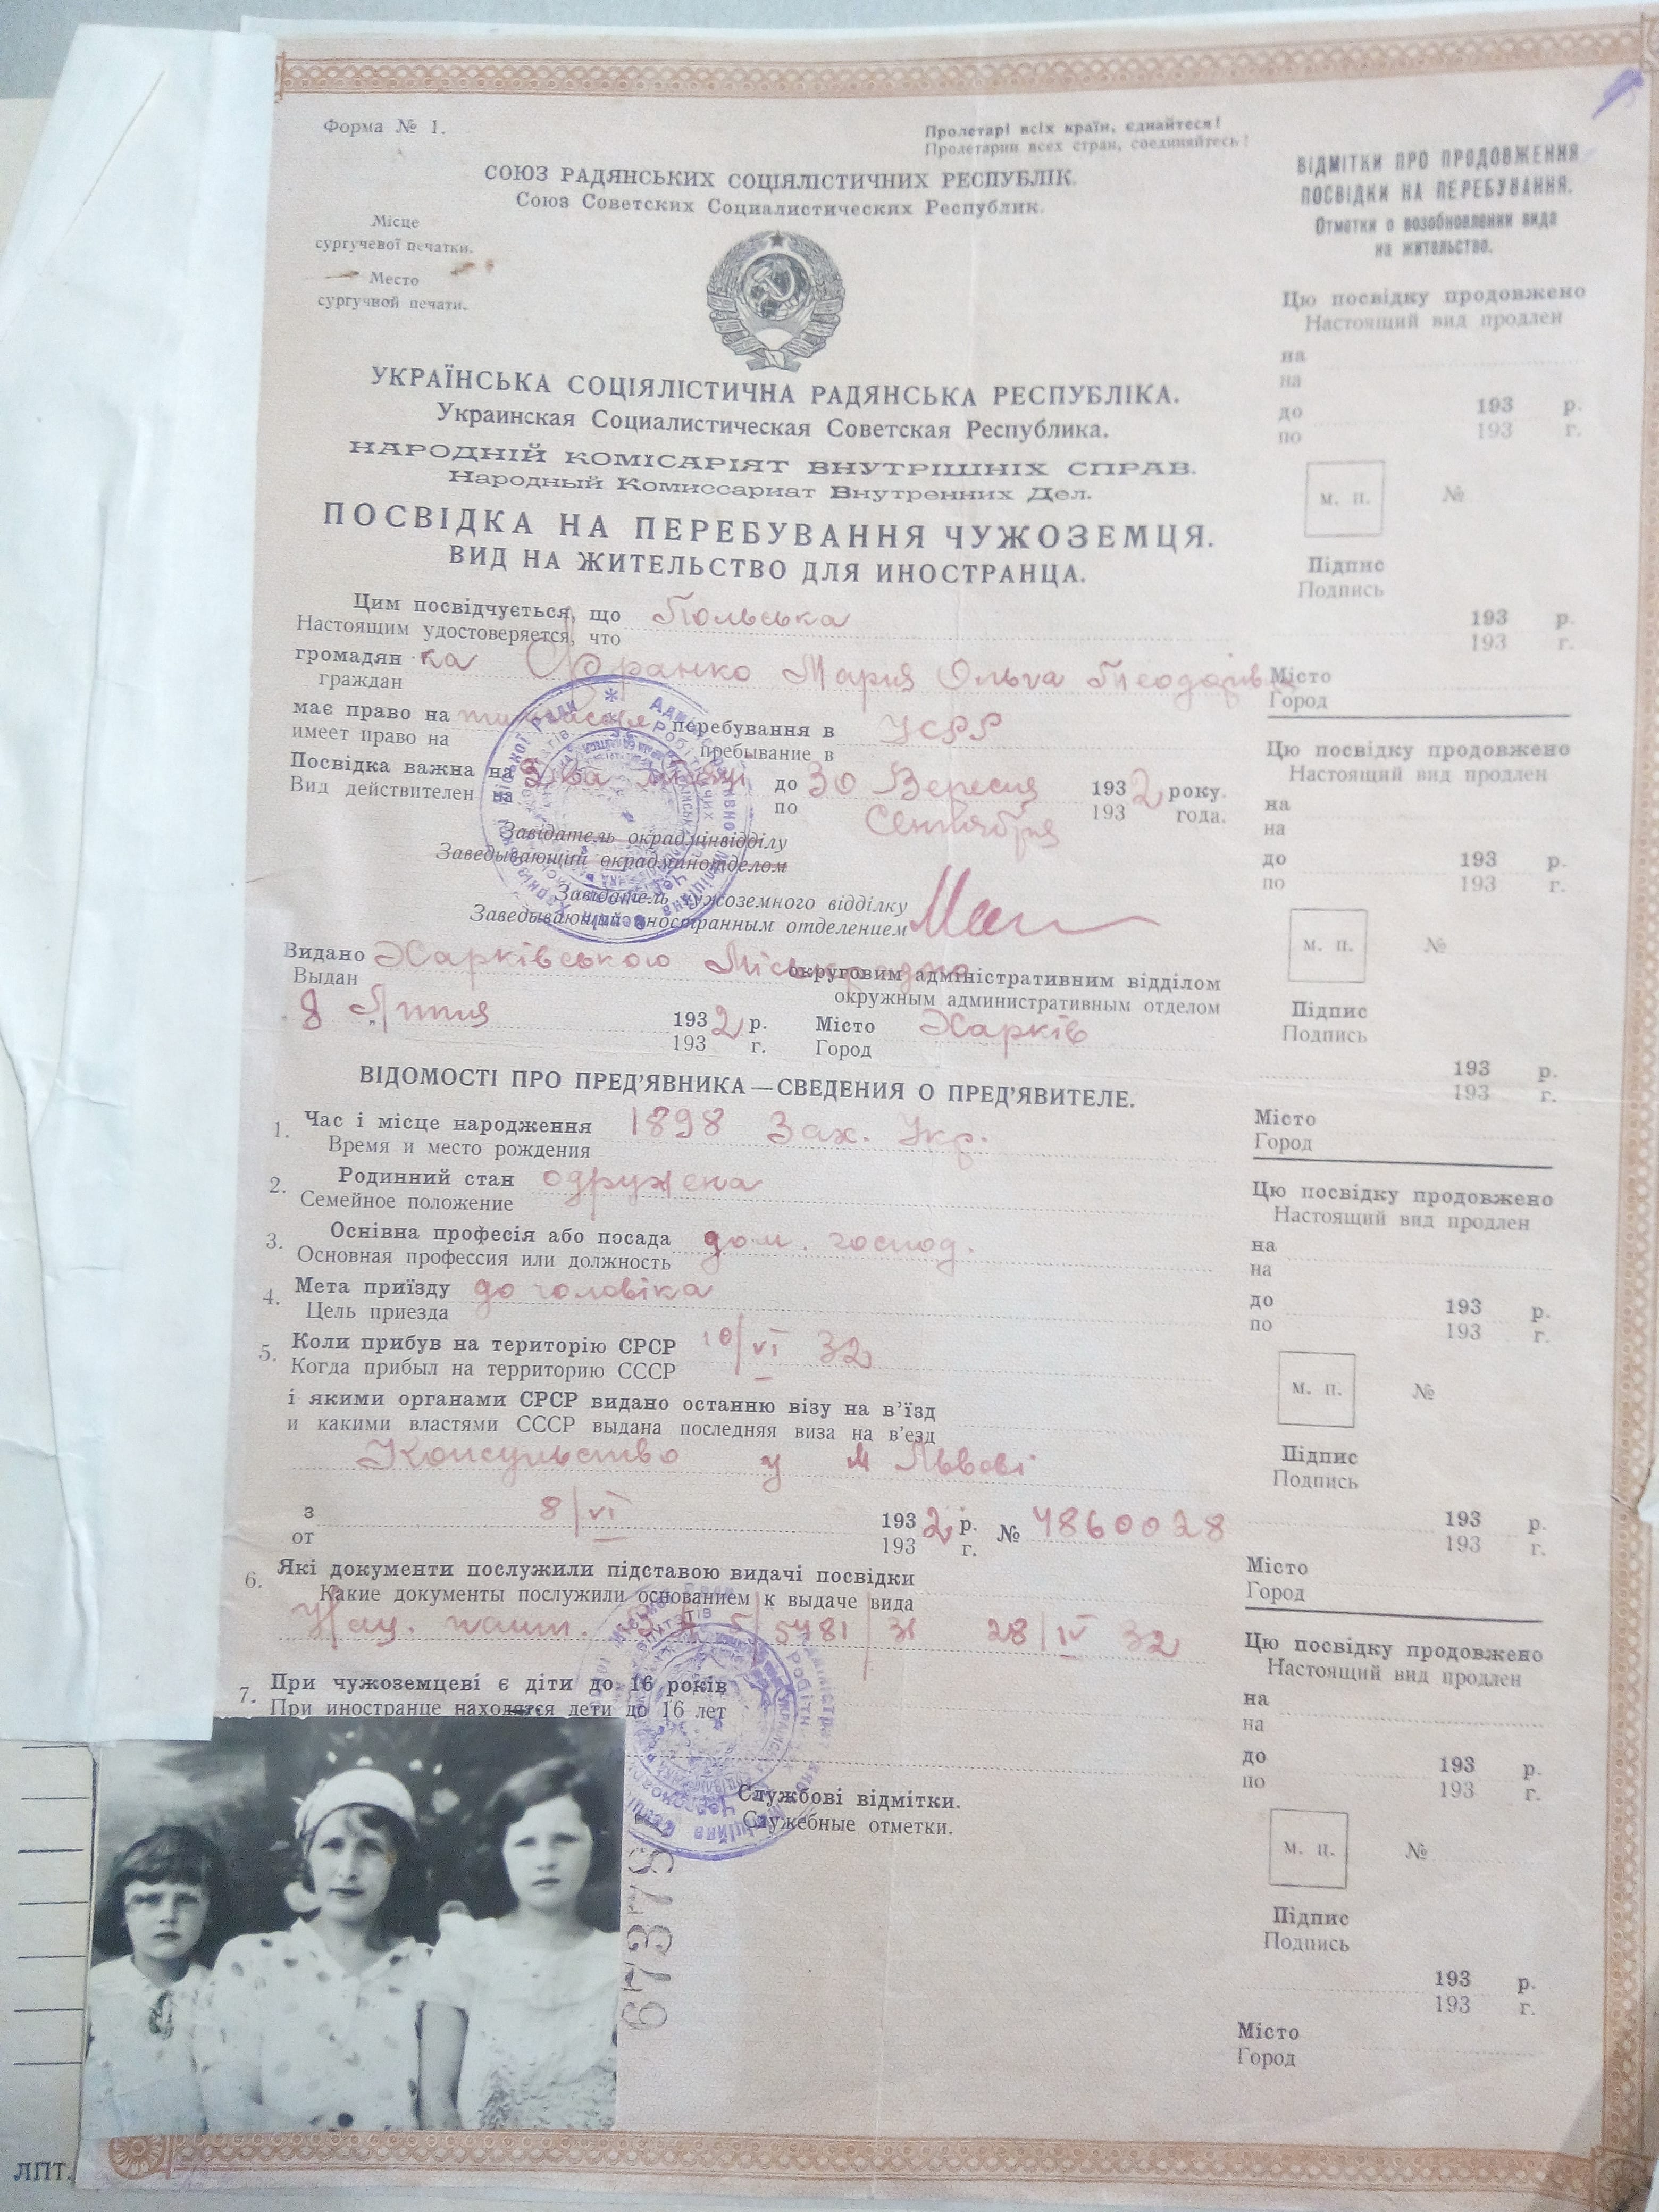 Форма № 1.
Пролетарі всіх країн, єднайтеся!
Пролетарии всех стран, соединяйтесь!
СОЮЗ РАДЯНСЬКИХ СОЦІЯЛІСТИЧНИХ РЕСПУБЛІК.
Союз Советских Социалистических Республик.
Місце
сургучевої печатки.
Место
сургучвой печати.
УКРАЇНСЬКА СОЦІЯЛІСТИЧНА РАДЯНСЬКА РЕСПУБЛІКА.
Украинская Социалистическая Советская Республика.
НАРОДНІЙ КОМІСАРІЯТ ВНУТРІШНІХ СПРАВ.
Народный Комиссариат Внутренних Дел.
ПОСВІДКА НА ПЕРЕБУВАННЯ ЧУЖОЗЕМЦЯ.
ВИД НА ЖИТЕЛЬСТВО ДЛЯ ИНОСТРАНЦА.
Цим посвідчується, що Польська
Настоящим удостоверяется, что
громадян ка Франко Мария Ольга Теодорівна
граждан
має право на тимчасове перебування в УСРР
имеет право на пребывание в
Посвідка важна на два місяці до 30 Вересня 1932 року.
Вид действителен на по Сентября 193 года.
Завідатель окрадмінвідділу
Заведывающий окрадминотделом
Завідатель чужоземного відділку
Заведывающий иностранным отделением
Видано Харківською Міськрадою округовим адміністративним відділом
Выдан окружным административным отделом
8 Липня 1932 р. Місто Харків
193 г. Город
ВІДОМОСТІ ПРО ПРЕД'ЯВНИКА — СВЕДЕНИЯ О ПРЕД'ЯВИТЕЛЕ.
1. Час і місце народження 1898 Зах. Укр.
Время и место рождения
2. Родинний стан одружена
Семейное положение
3. Основна професія або посада дом. господ.
Основная профессия или должность
4. Мета приїзду до чоловіка
Цель приезда
5. Коли прибув на територію СРСР 10/VI 32
Когда прибыл на территорию СССР
і якими органами СРСР видано останню візу на в'їзд
и какими властями СССР выдана последняя виза на в'езд
Консульство у м Львові
з 8/VI 1932 р. № 4860028
от 193 г.
6. Які документи послужили підставою видачі посвідки
Какие документы послужили основанием к выдаче вида
Нац. пашп. 5781/31 28/IV 32
7. При чужоземцеві є діти до 16 років
При иностранце находятся дети до 16 лет
Службові відмітки.
Служебные отметки.
67378
ЛПТ.
ВІДМІТКИ ПРО ПРОДОВЖЕННЯ
ПОСВІДКИ НА ПЕРЕБУВАННЯ.
Отметки о возобновлении вида
на жительство.
Цю посвідку продовжено
Настоящий вид продлен
на
на
до 193 р.
по 193 г.
м. п. №
Підпис
Подпись
193 р.
193 г.
Місто
Город
Цю посвідку продовжено
Настоящий вид продлен
на
на
до 193 р.
по 193 г.
м. п. №
Підпис
Подпись
193 р.
193 г.
Місто
Город
Цю посвідку продовжено
Настоящий вид продлен
на
на
до 193 р.
по 193 г.
м. п. №
Підпис
Подпись
193 р.
193 г.
Місто
Город
Цю посвідку продовжено
Настоящий вид продлен
на
на
до 193 р.
по 193 г.
м. п. №
Підпис
Подпись
193 р.
193 г.
Місто
Город